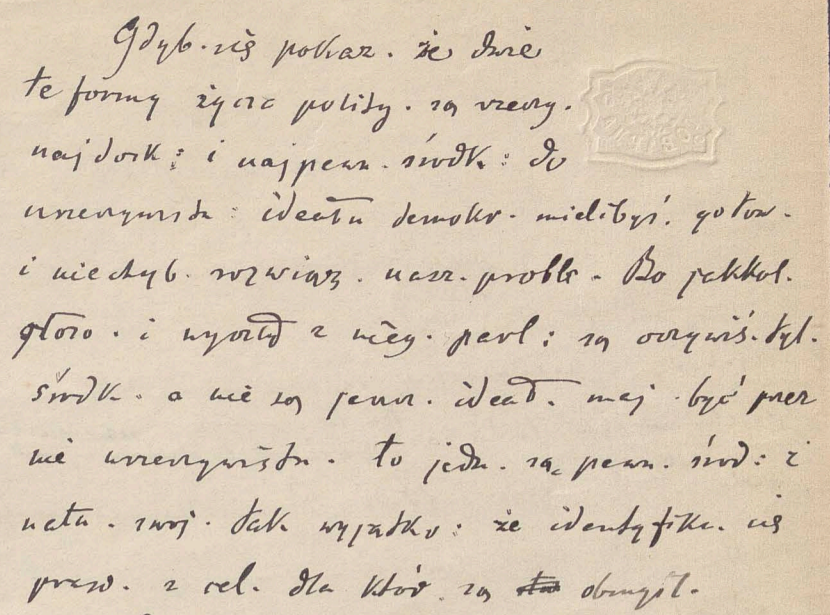 Gdyb. się pokaz. że dwie
te formy życia polity. są rzeczy.
najdosk: i najpewn. środk: do
urzeczywistn: ideału demokr. mielibyś. gotow.
i niechyb. rozwiąz. nasz. probl. Bo jakkol.
głoso. i wybor z niej. parl: są oczywiś. tyl.
środk. a nie są jeszcz. ideał. maj. być przez
nie urzeczywistn. to jedn. są pewn. środ: z
natu. swoj. tak wyjątko: że identyfik. się
praw. z cel. dla któr. są obmyśl.